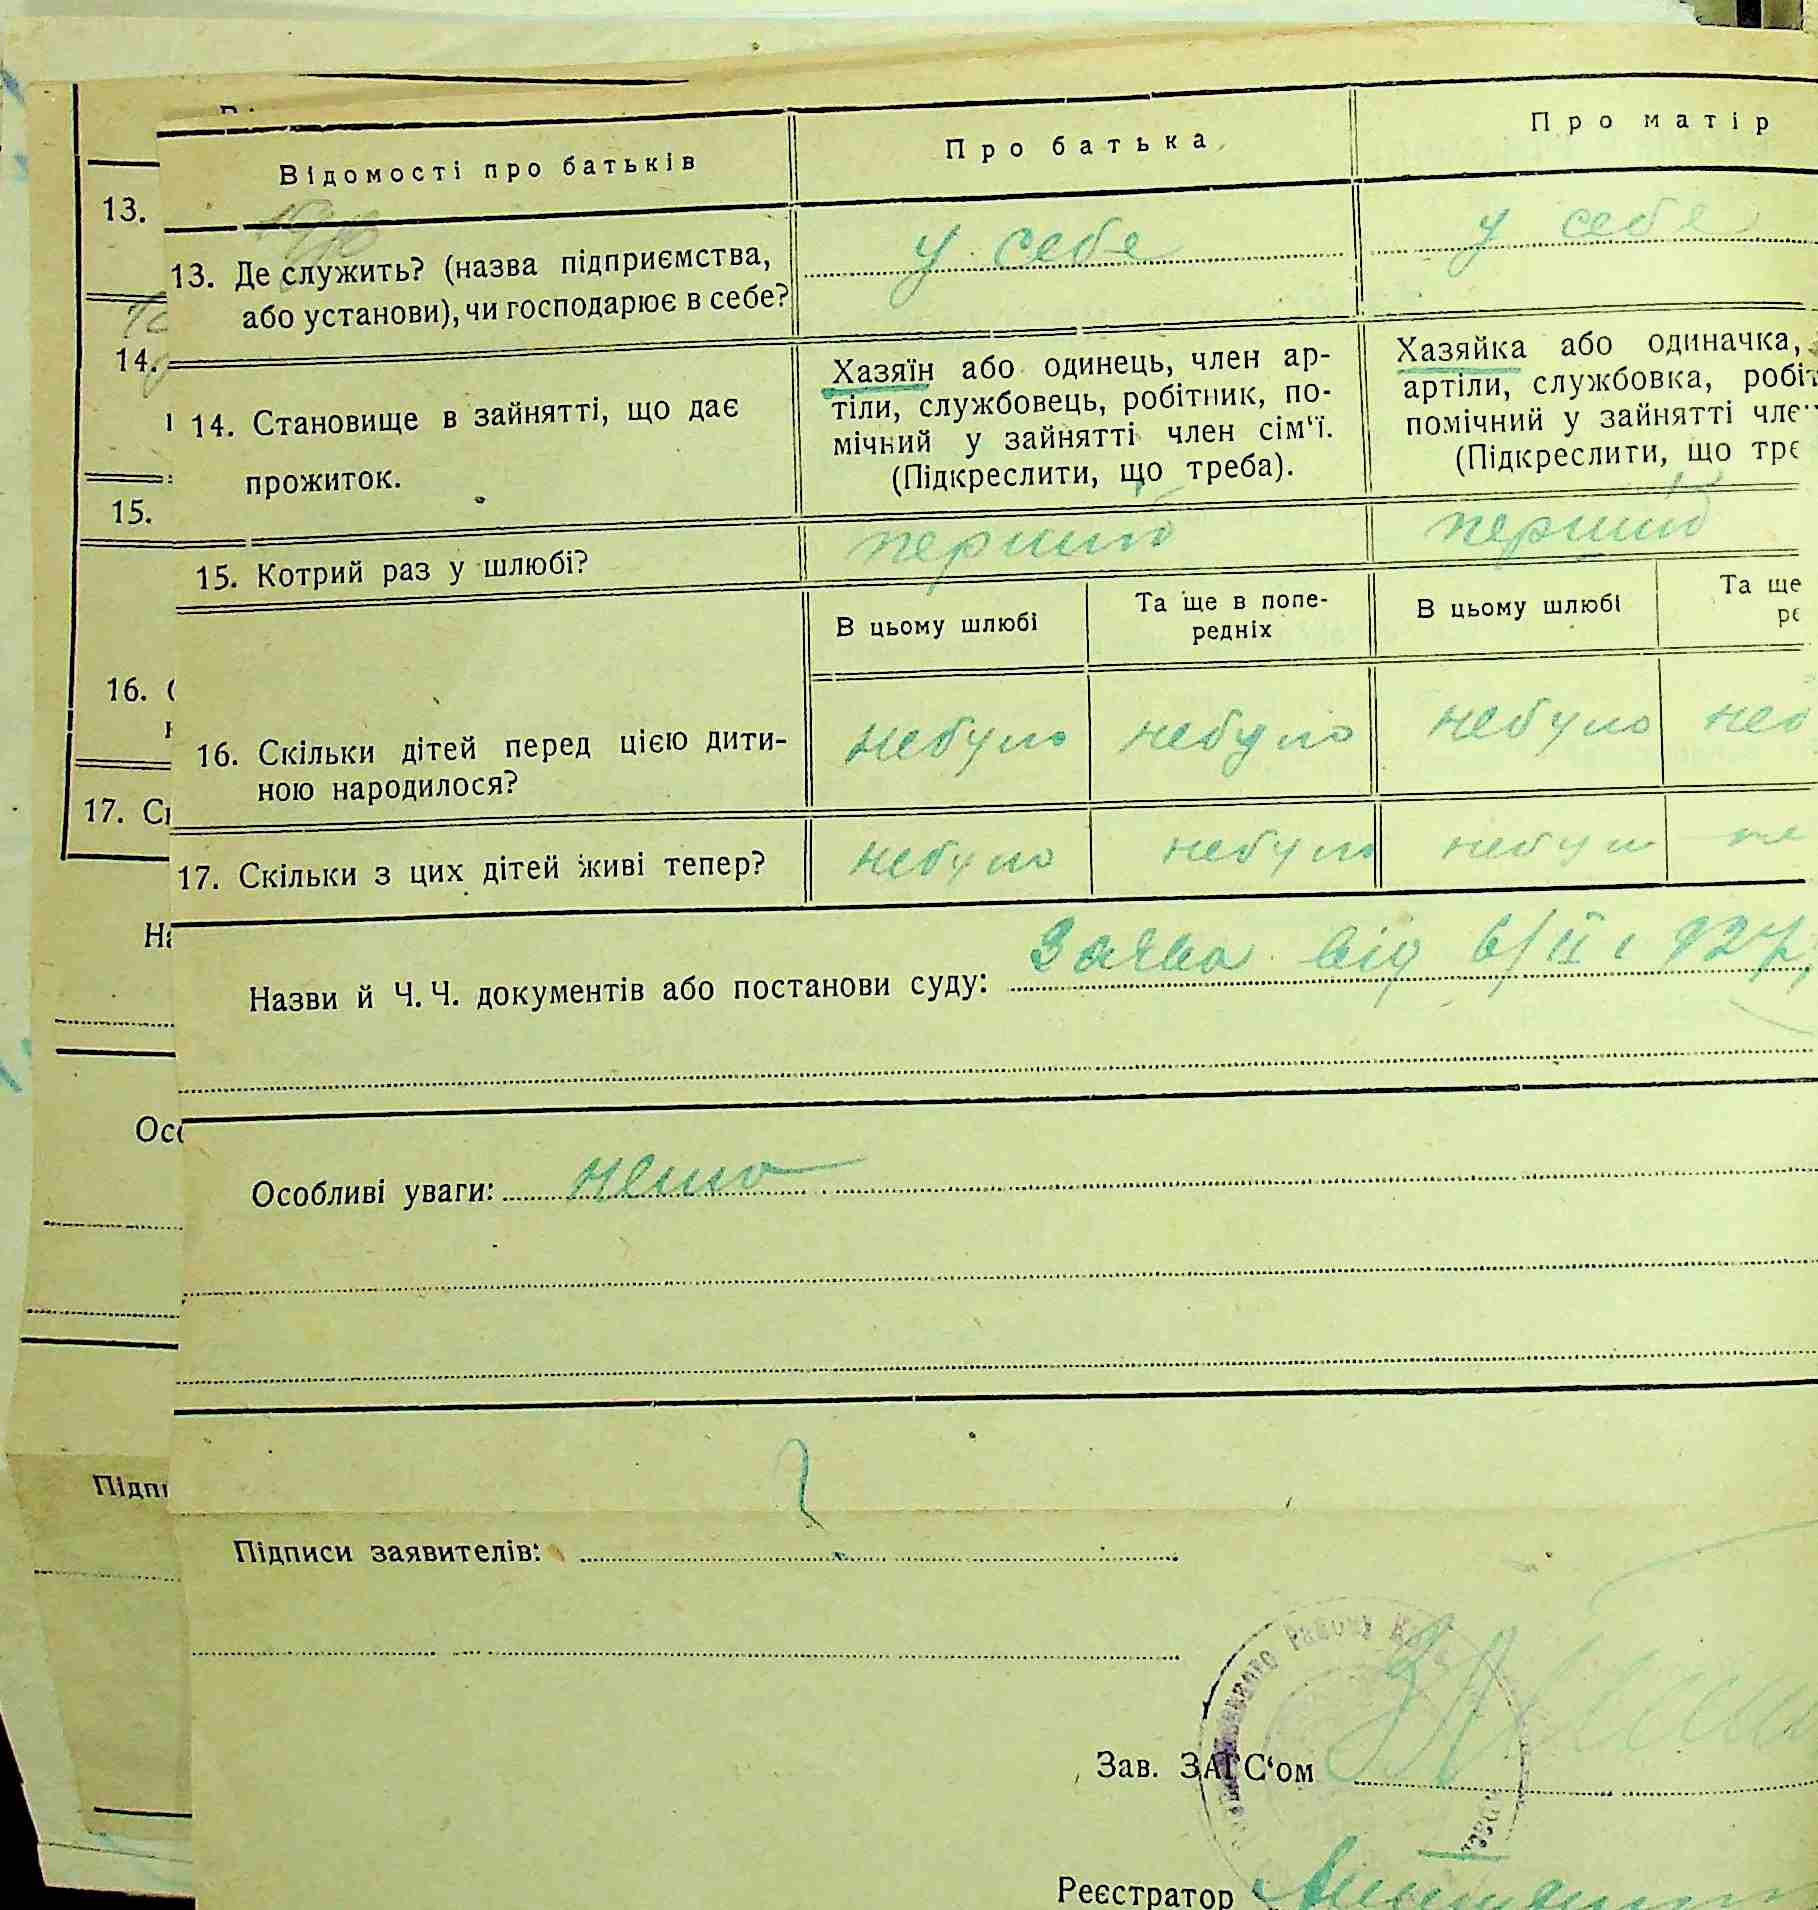 13.
14.
15.
16.
17.
Відомості про батьків
Про батька
Про матір
13. Де служить? (назва підприємства,
або установи), чи господарює в себе?
у себе
у себе
14. Становище в зайнятті, що дає
прожиток.
Хазяїн або одинець, член ар-
тіли, службовець, робітник, по-
мічний у зайнятті член сім'ї.
(Підкреслити, що треба).
Хазяйка або одиначка,
артіли, службовка, робіт
помічний у зайнятті чле
(Підкреслити, що тре
15. Котрий раз у шлюбі?
перший
перший
В цьому шлюбі
Та ще в попе-
редніх
В цьому шлюбі
Та ще
ре
16. Скільки дітей перед цією дити-
ною народилося?
небуло
небуло
небуло
неб
17. Скільки з цих дітей живі тепер?
небуло
небуло
небуло
не
Назви й Ч. Ч. документів або постанови суду: Заява від 6/II 1927р.
Особливі уваги: нема
Підписи заявителів:
Зав. ЗАГС'ом
Реєстратор